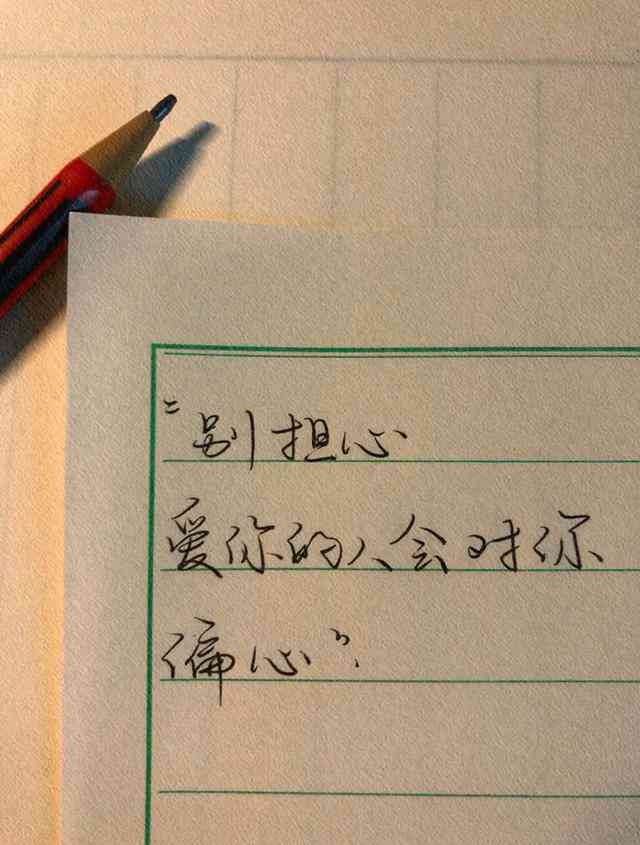 “别担心
爱你的人会对你
偏心”.